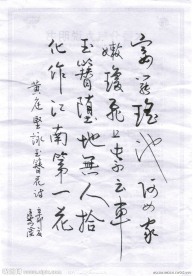 宴罷瑤池阿母家
嫩瓊飛上紫云車
玉簪墮地無人拾
化作江南第一花
黄庭堅詠玉簪花诗